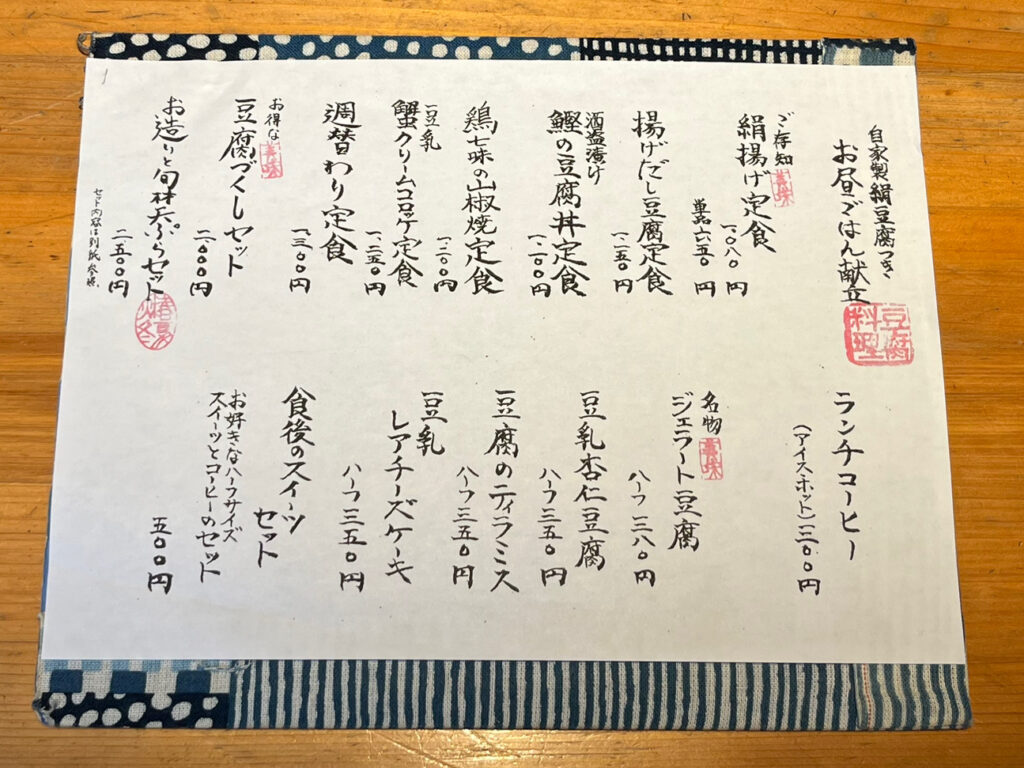 自家製絹豆腐つき
お昼ごはん献立
豆腐
料理
ご存知
絹揚げ定食
一、〇八〇円
単品六五〇円
揚げだし豆腐定食
一、一五〇円
酒盗漬け
鰹の豆腐丼定食
一、一〇〇円
鶏七味の山椒焼定食
一、二〇〇円
豆乳
蟹クリームコロッケ定食
一、二五〇円
週替わり定食
一、三〇〇円
お得な
豆腐づくしセット
二、〇〇〇円
お造りと旬天ぷらセット
二、五〇〇円
セット内容は別紙参照。
ランチコーヒー
(アイス・ホット)二〇〇円
名物
ジェラート豆腐
ハーフ三八〇円
豆乳杏仁豆腐
ハーフ三五〇円
豆腐のティラミス
ハーフ三五〇円
豆乳
レアチーズケーキ
ハーフ三五〇円
食後のスイーツ
セット
お好きなハーフサイズ
スイーツとコーヒーのセット
五〇〇円